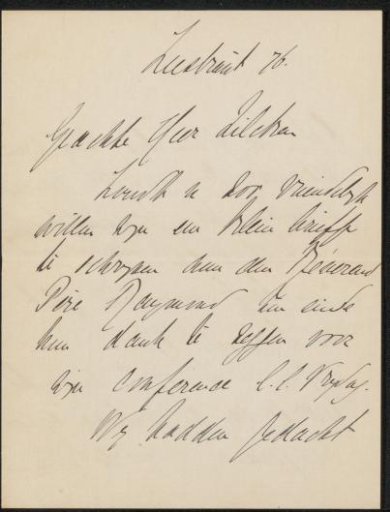 Zeestraat 76.
Geachte Heer Zilcken
Zoudt u zoo vriendelijk
willen zijn een klein briefje
te schrijven aan den Révérend
Père Raymond ten einde
hem dank te zeggen voor
zijn conférence l.l. Vrydag.
Wy hadden gedacht